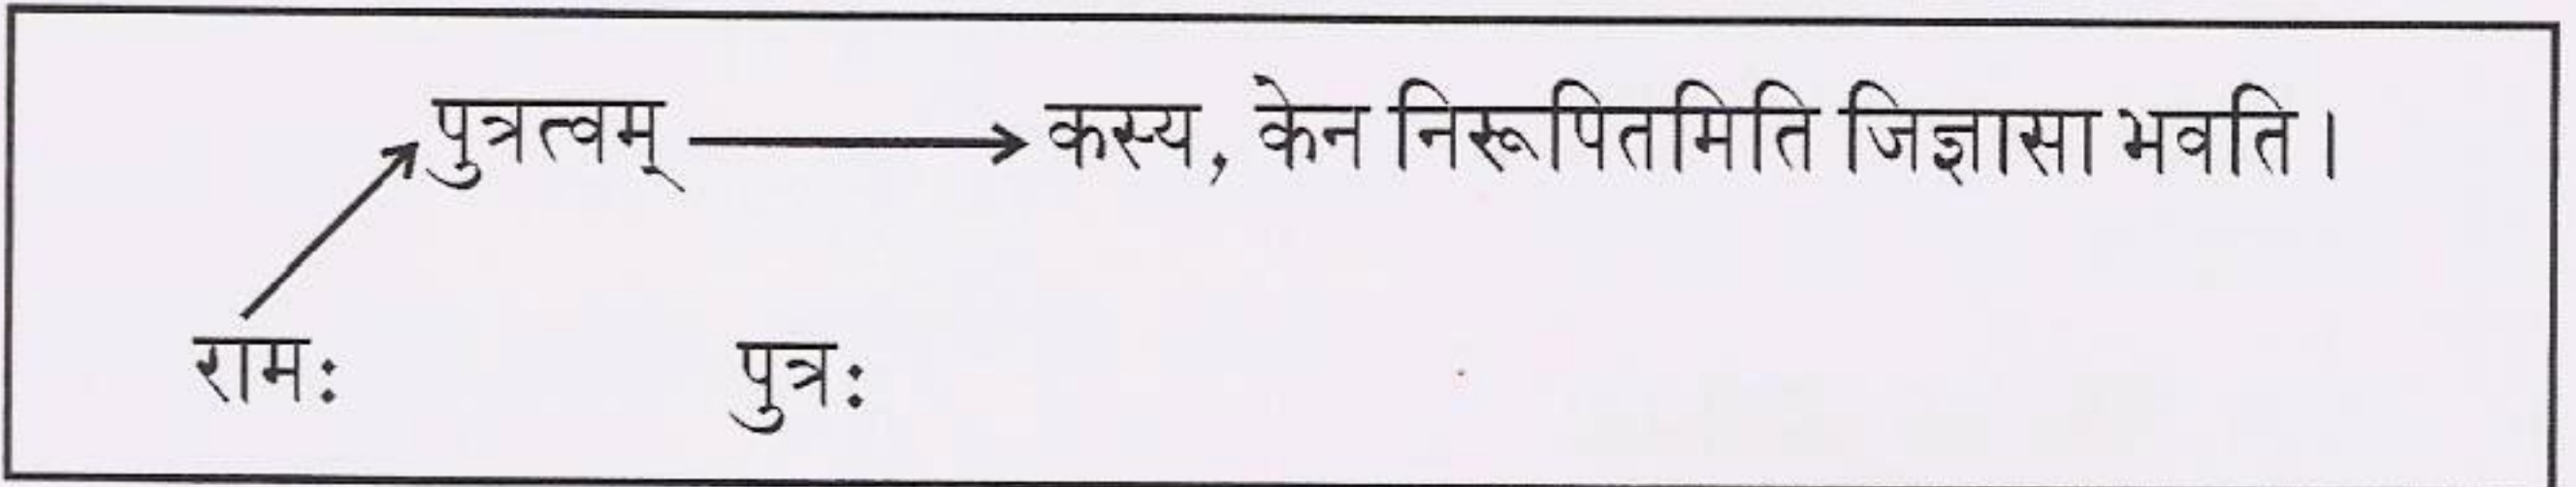 पुत्रत्वम् कस्य, केन निरूपितमिति जिज्ञासा भवति।
रामः पुत्रः